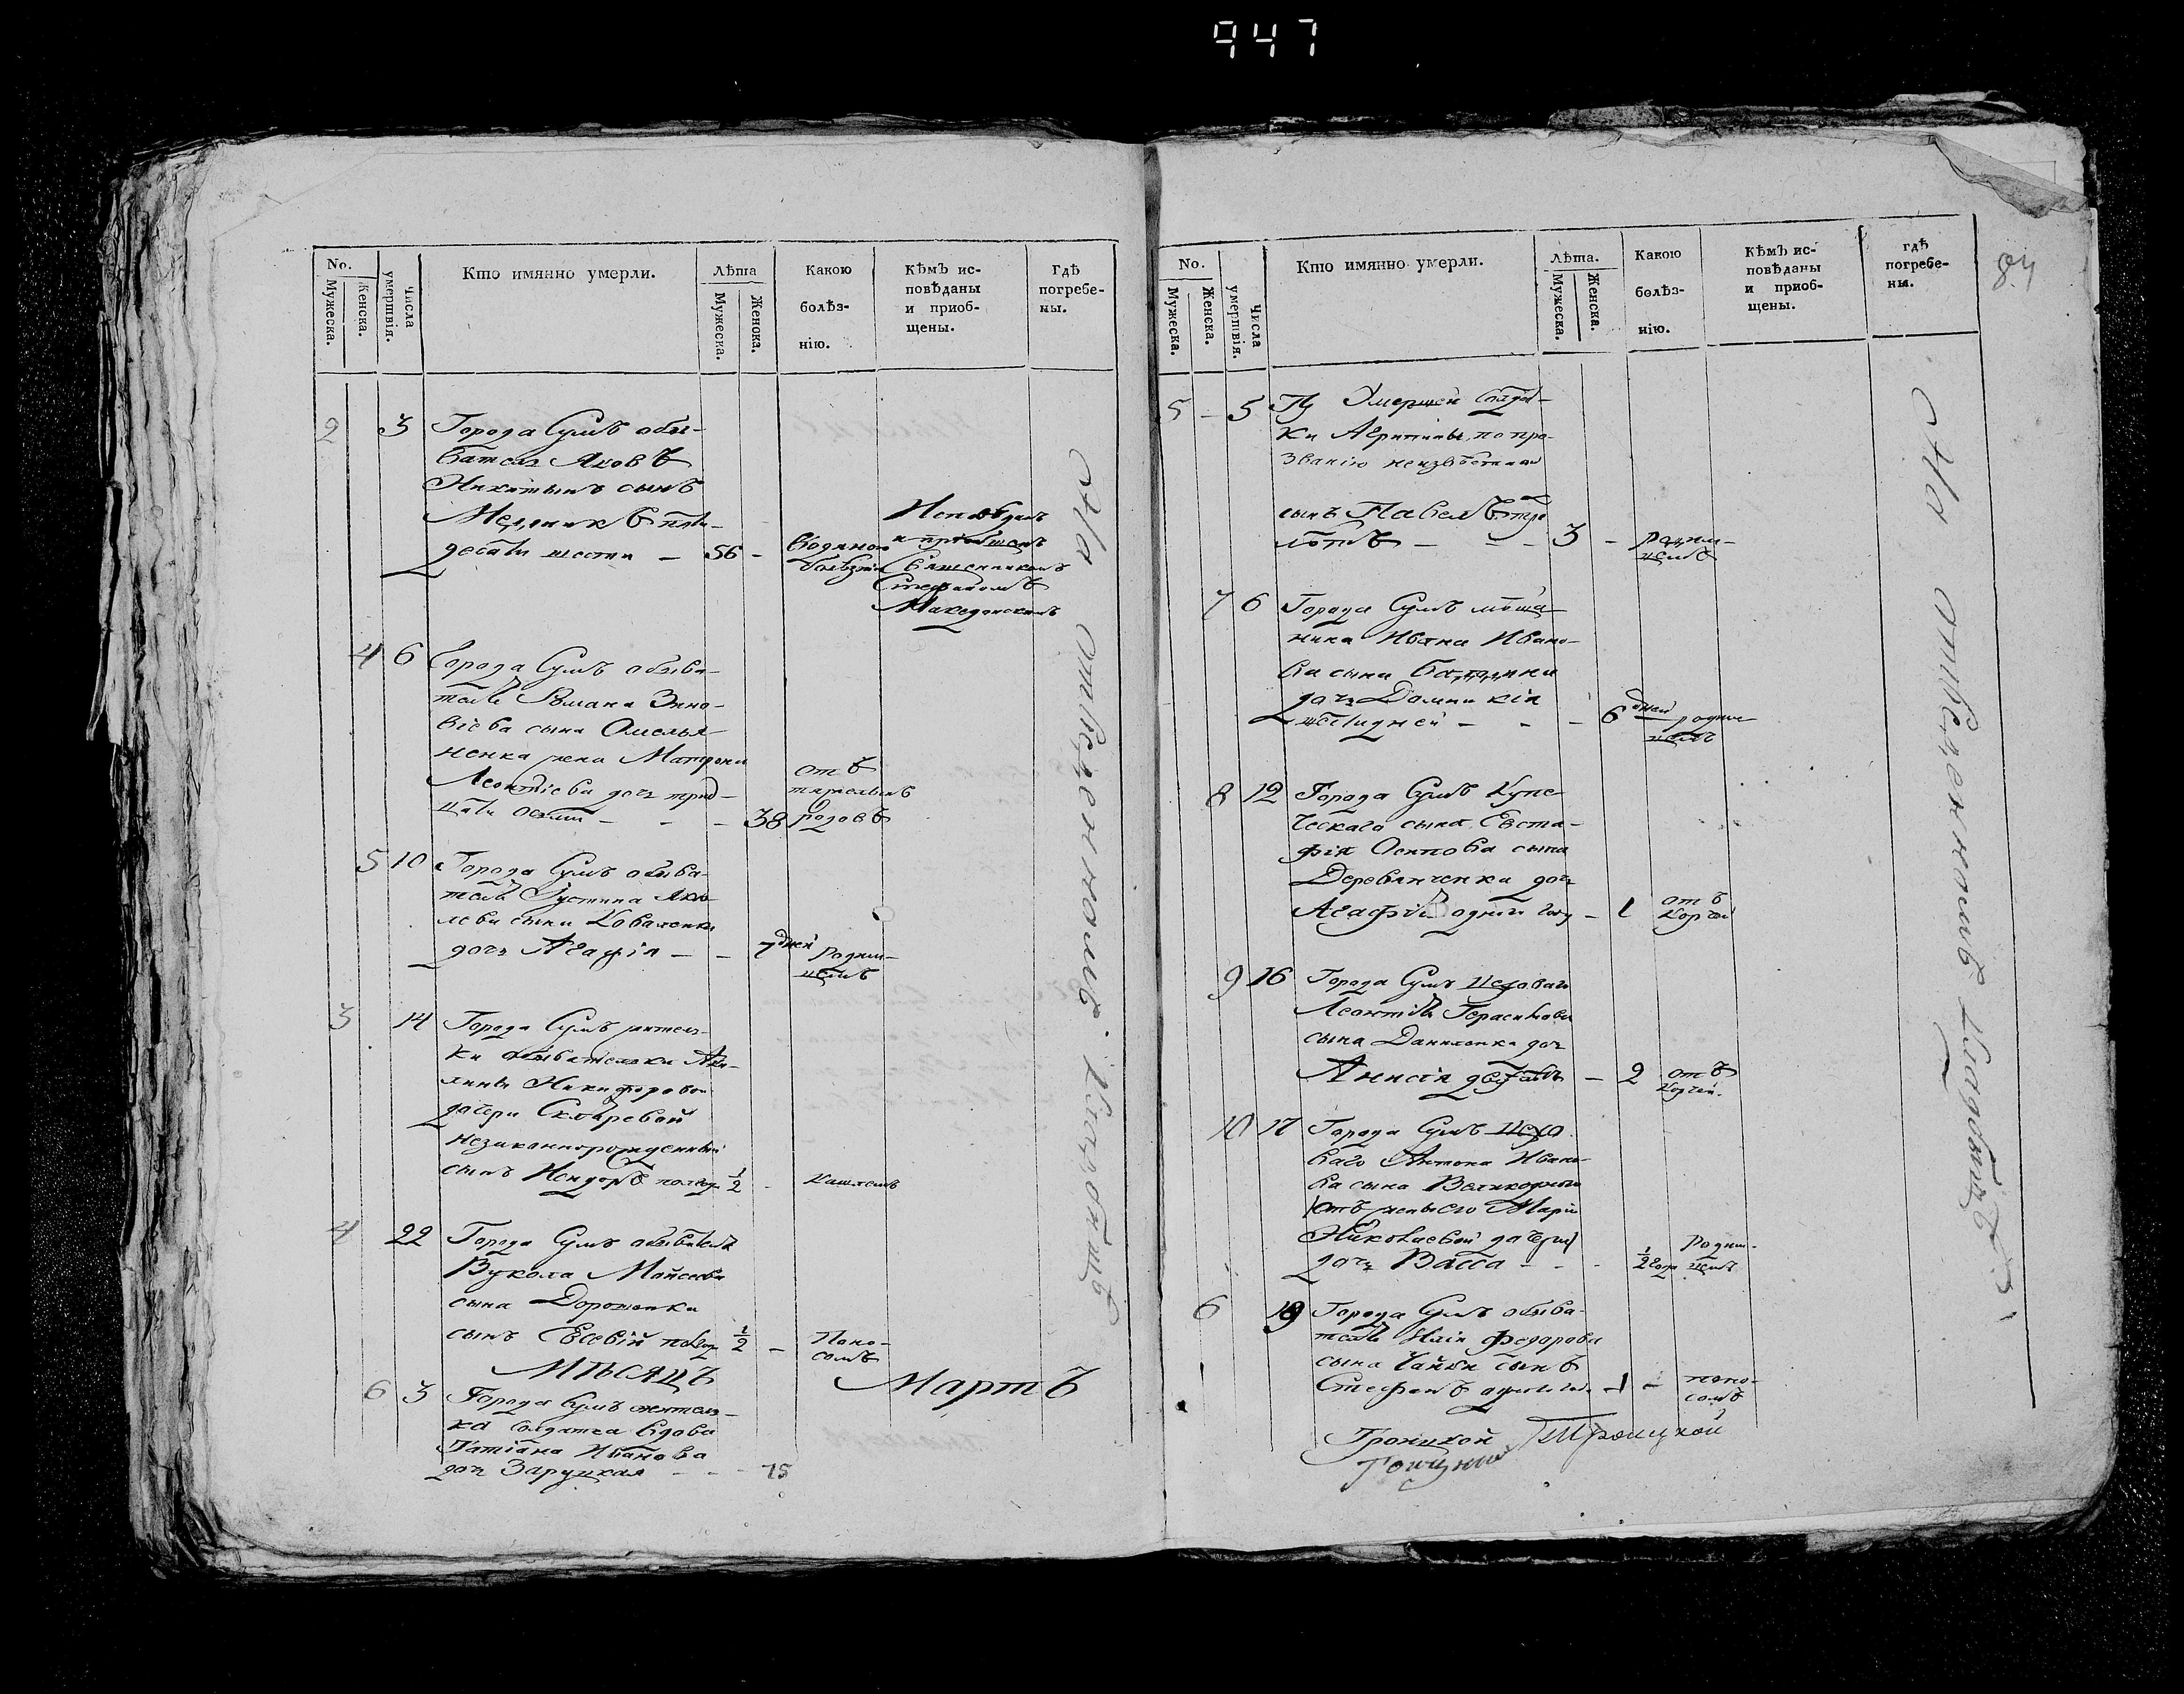 947
No.
Мужеска.
Женска.
Числа умертвія.
Кто имянно умерли.
Лѣта
Мужеска.
Женска.
Какою болѣз-
нію.
Кѣмъ ис-
повѣданы
и приоб-
щены.
Гдѣ
погребе-
ны.
2 3 Города Сумъ обы-
ватель Яковъ
Никитинъ сынъ
Мельникъ пять-
десятъ шести — 56 — водяною болѣзнію
Исповѣданъ
и приобщенъ
Священникомъ
Стефаномъ
Македонскимъ
4 6 Города Сумъ обыва-
теля Романа Зино-
віева сына Омелья-
ненка жена Матрона
Леонтіева дочь трид-
цати осьми — — — 38
отъ
тяжелыхъ
родовъ
5 10 Города Сумъ обыва-
теля Іустина Яков-
лева сына Коваленка
дочь Агафія — — 7 дней родим-
цемъ
3 14 Города Сумъ житель-
ки обывательки Аку-
лины Никифоровой
дочери Скляревой
незаконнорожденный
сынъ Исидоръ полгода ½ — кашлемъ
4 22 Города Сумъ обывателя
Вукола Мойсеева
сына Дорошенка
сынъ Евсевій полгода ½ — Поно-
сомъ
Мѣсяцъ Мартъ
6 3 Города Сумъ житель-
ка солдатка вдова
Татіана Иванова
дочь Заруцкая — — — 75
На отведенномъ кладбищѣ
No.
Мужеска.
Женска.
Числа умертвія.
Кто имянно умерли.
Лѣта.
Мужеска.
Женска.
Какою
болѣз-
нію.
Кѣмъ ис-
повѣданы
и приоб-
щены.
гдѣ
погребе-
ны.
84
5 — 5 Умершей солдат-
ки Агрипины по про-
званію неизвѣстной
сынъ Павелъ трё
лѣтъ — — — 3 — родим-
цемъ
7 6 Города Сумъ мѣща-
нина Ивана Ивано-
ва сына
дочь Домникія
шести дней — — — 6 дней родим-
цемъ
8 12 Города Сумъ Купе-
ческаго сына Евста-
фія Осипова сына
Деревянченка дочь
Агафія одного году — 1 отъ
корчей
9 16 Города Сумъ Цеховаго
Леонтія Герасимова
сына Даниленка дочь
Анисія двухъ лѣтъ — 2 отъ
корчей.
10 17 Города Сумъ Цехо-
ваго Антона Ивано-
ва сына Великоднаго
отъ жены его Маріи
Николаевой дочери
дочь Васса — — — ½ года Родим-
цемъ
6 19 Города Сумъ обыва-
теля Иліи Федорова
сына Чайки сынъ
Стефанъ одного года — 1 — поно-
сомъ
Троицкой Троицкой
На отведенномъ кладбищѣ